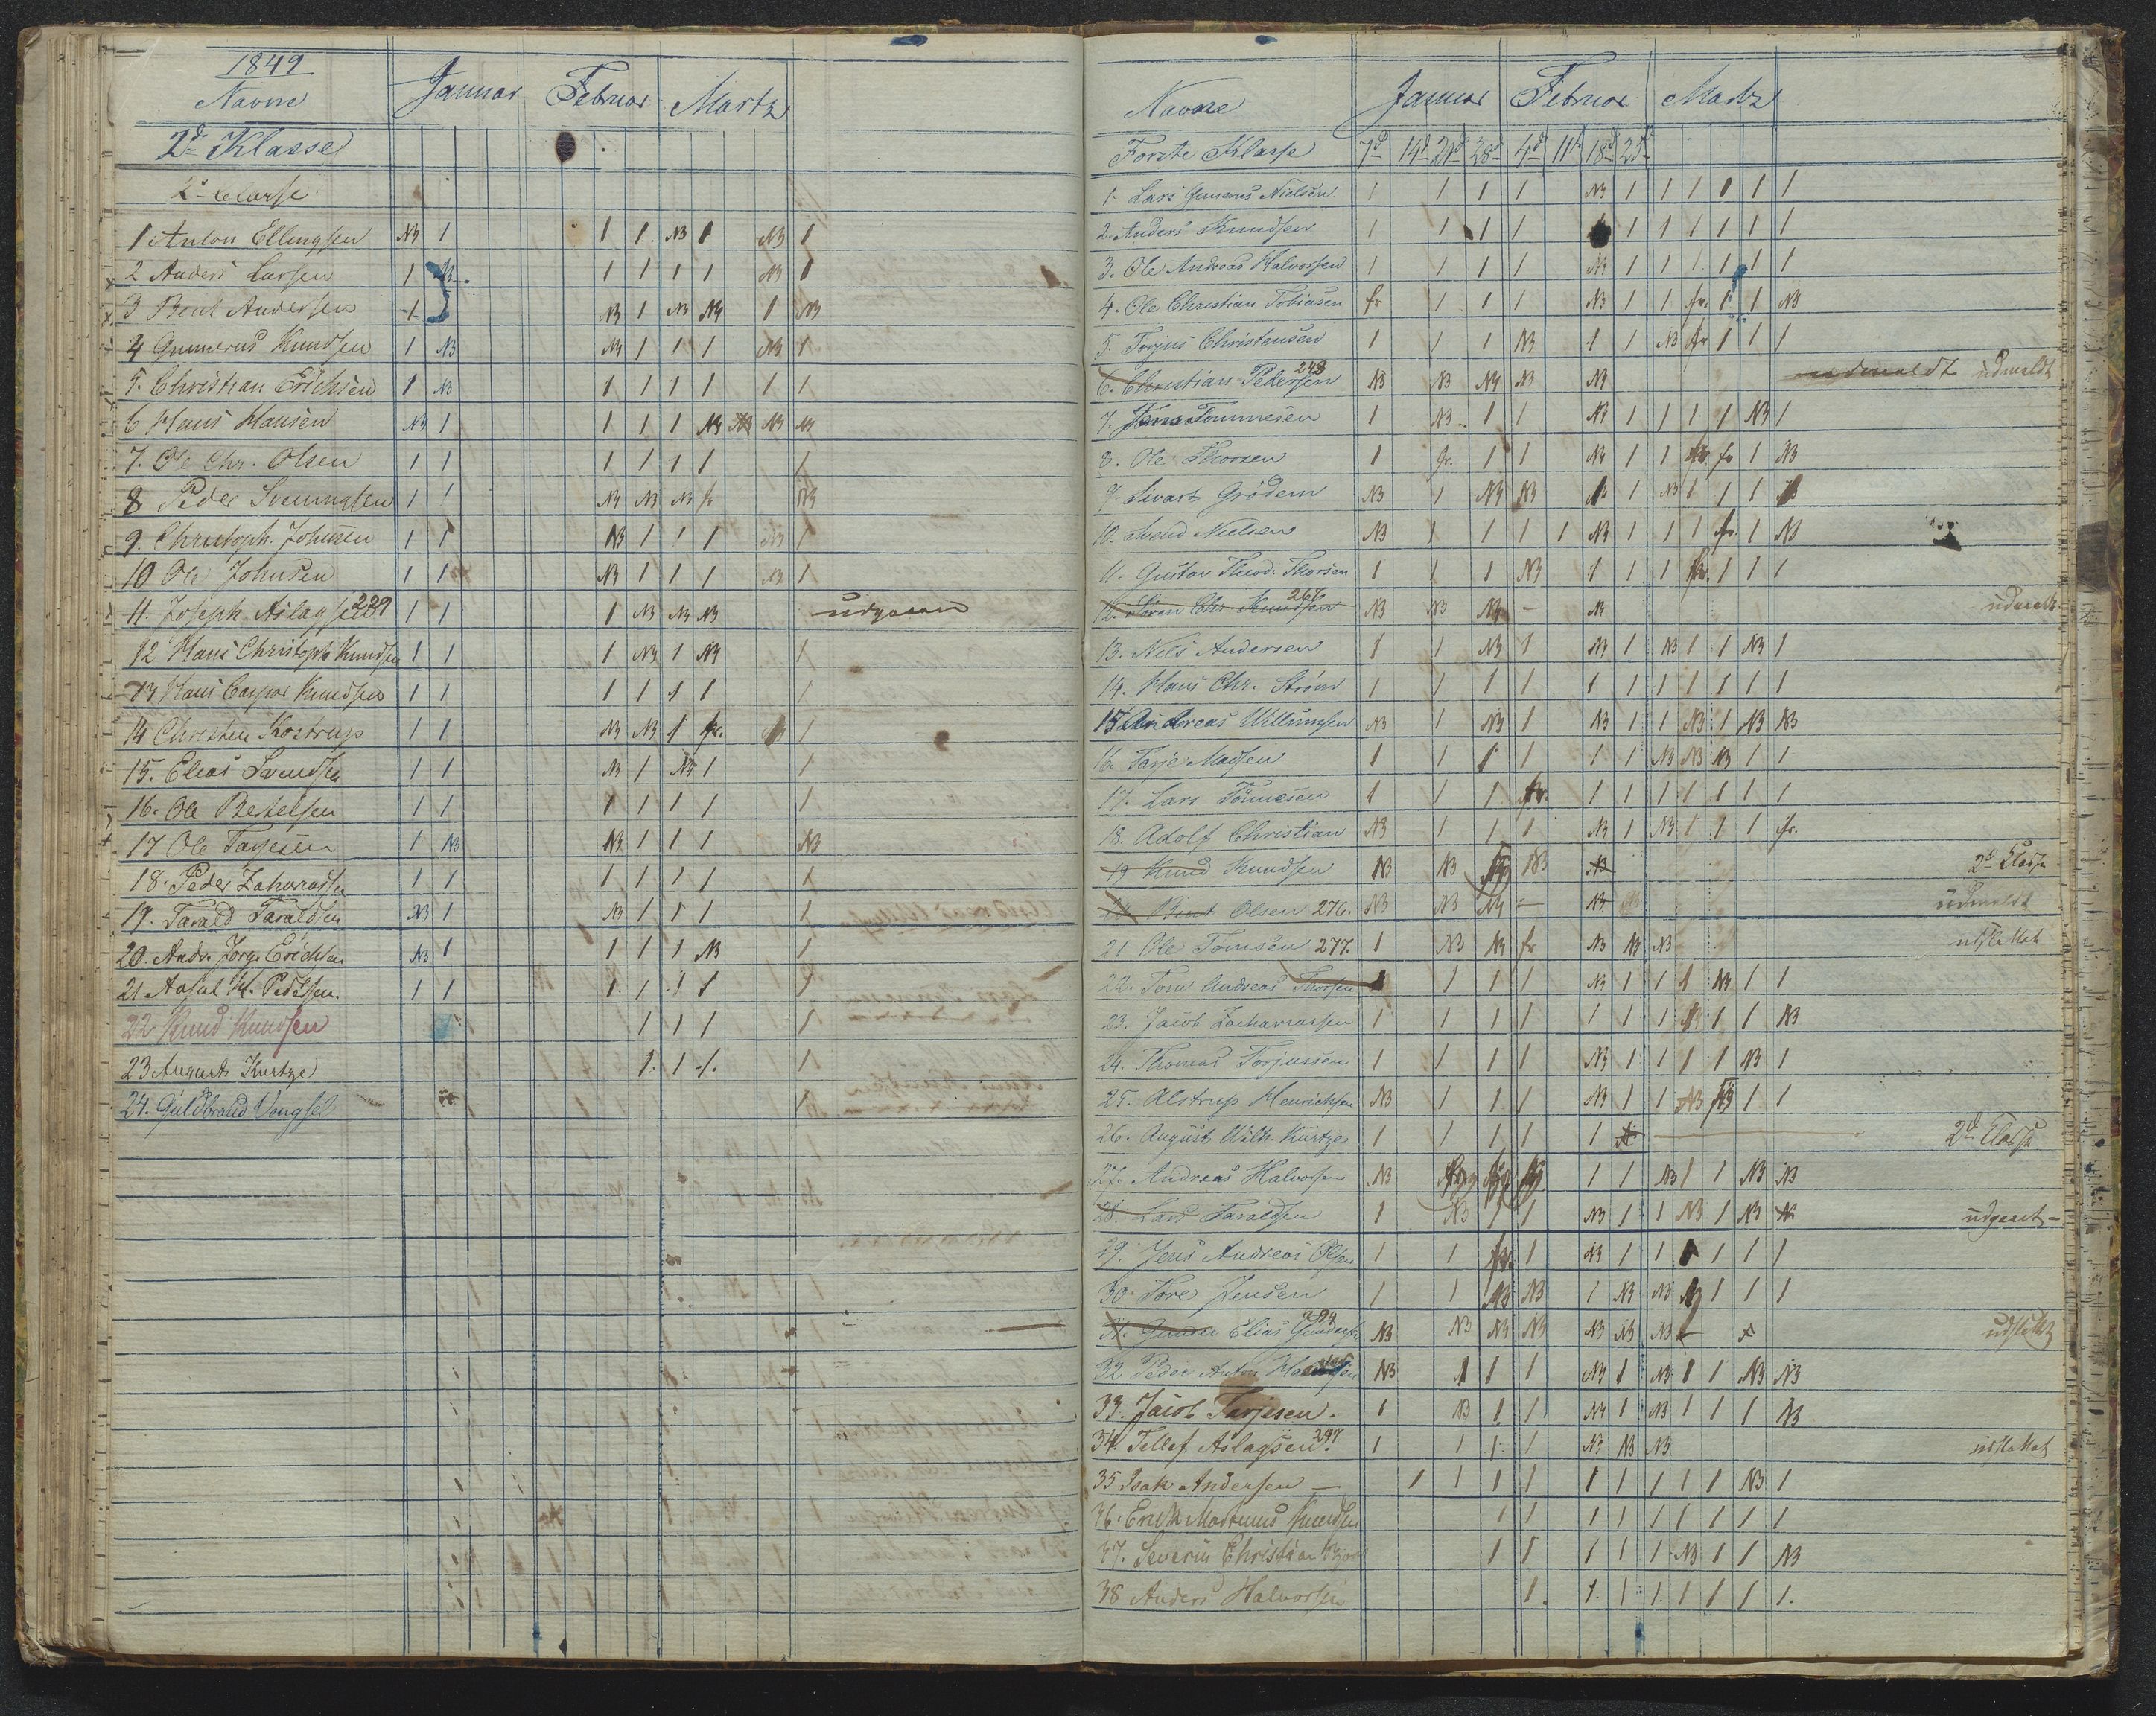 1849
Navne Januar Februar Martz
2d Klasse
2d Classe
1 Anton Ellingsen NB 1 1 1 NB 1 NB 1
2 Anders Larsen 1 NB 1 1 1 1 NB 1
3 Bent Andersen 1 NB 1 NB NB 1 NB
4 Gunnerus Knudsen 1 NB NB 1 1 1 NB 1
5. Christian Erichsen 1 NB 1 1 1 1 1 1
6 Hans Hansen NB 1 1 1 1 NB NB NB NB
7. Ole Chr. Olsen 1 1 1 1 1 1 1
8 Peder Svenningsen 1 1 NB NB NB fr NB
9. Christoph. Johnsen 1 1 NB 1 1 1 NB 1
10 Ole Johnsen 1 1 NB 1 1 1 NB 1
11. Joseph Aslagsen 239 1 1 1 NB NB NB udgaaen
12 Hans Christoph Knudsen 1 1 1 NB 1 NB 1
13 Hans Caspar Knudsen 1 1 1 1 1 1 1
14 Christen Kostrup 1 1 NB NB 1 fr. 1
15. Elias Svendsen 1 1 NB 1 NB 1 1
16. Ole Bertelsen 1 1 1 1 1 1 1
17 Ole Tarjesen 1 NB NB 1 1 1 NB
18. Peder Zahariasen 1 1 1 1 1 1 1
19. Tarald Taraldsen NB 1 NB 1 1 1 1
20. Andr. Jørg. Erichsen NB 1 1 1 1 NB 1
21 Aasul H. Pedersen. 1 1 1 1 1 1 1
22 Knud Knudsen 1 1 1 1
23 August Kurtze 1. 1 1. 1
24. Guldbrand Vengsel 1
Navne Januar Februar Martz
Forste Klasse 7d 14d 21d 28d 4d 11d 18d 25d
1. Lars Gunerus Nielsen 1 1 1 1 NB 1 1 1 1 1 1
2. Anders Knudsen 1 1 1 1 1 1 1 1 1 1
3. Ole Andreas Halvorsen 1 1 1 1 NB 1 1 1 1 1 1
4. Ole Christian Tobiasen fr 1 1 1 NB 1 1 fr. 1 1 NB
5. Torjus Christensen 1 1 1 NB 1 1 NB fr 1 1 1
6. Christian Pedersen 243 NB NB NB NB NB udmeldt udmeldt
7. Tønnesen 1 NB 1 1 NB 1 1 1 1 NB 1
8. Ole Thorsen 1 fr. 1 1 NB 1 1 fr fr 1 NB
9. Sivart Grödem NB 1 NB NB 1 NB 1 1 1
10. Svend Nielsen NB 1 1 1 1 NB 1 1 1 fr. 1 NB
11. Gustav Theod. Thorsen 1 1 1 NB 1 1 1 fr. 1 1 1
12. Søren Chr. Knudsen 267 NB NB NB — NB udmeldt
13. Nils Andersen 1 1 NB 1 NB 1 NB 1 1 NB 1
14. Hans Chr. Strøm 1 1 1 1 1 1 1 1 1 1 1
15 Andreas Willumsen NB 1 NB 1 NB 1 1 NB 1 NB NB
16. Tarje Madsen 1 1 1 1 1 1 NB NB NB 1 1
17. Lars Tönnesen 1 1 1 fr. 1 1 1 1 1 1 1
18. Adolf Christian NB 1 1 1 NB 1 NB 1 1 1 fr.
19 Knud Knudsen NB NB NB NB NB 2d Classe
20 Bent Olsen 276. NB NB NB — NB udmeldt
21 Ole Tomsen 277. 1 NB NB fr NB NB NB udslettet
22. Tom Andreas Thorsen 1 1 1 1 NB 1 1 1 NB 1 1
23. Jacob Zachariassen 1 1 1 1 1 1 1 1 1 NB
24. Thomas Torjussen 1 1 1 1 NB 1 1 1 1 NB 1
25. Alstrup Henrichsen NB 1 1 1 NB 1 1 NB NB 1 1
26. August Wilh. Kurtze 1 1 1 1 1 2d Classe
27. Andreas Halvorsen NB 1 1 NB 1 1 NB NB
28. Lars Taraldsen 1 NB 1 1 NB 1 1 NB 1 NB NB udgaaet
29. Jens Andreas Olsen 1 1 fr. 1 NB 1 1 1 1 1 1
30. Tore Jensen 1 1 NB NB 1 NB NB 1 1 1
31. Gunder Elias Gundersen 294 NB NB NB NB NB NB NB x udslettet
32 Peder Anton NB 1 1 1 NB 1 NB 1 1 NB NB
33. Jacob Tarjesen. 1 NB 1 1 NB 1 NB 1 1 1 NB
34. Tellef Aslagsen 297. 1 1 1 1 NB NB NB udslettet
35 Isak Andersen — 1 1 1 1 1 1 1 1 1 NB 1
36. Erich Martinus Knudsen 1 1 1 1 1 1 1 1 1
37. Severin Christian 1 1 1 1 1 NB 1 1 NB
38 Anders Halvorsen 1. 1. 1 1. 1 1 1 1.